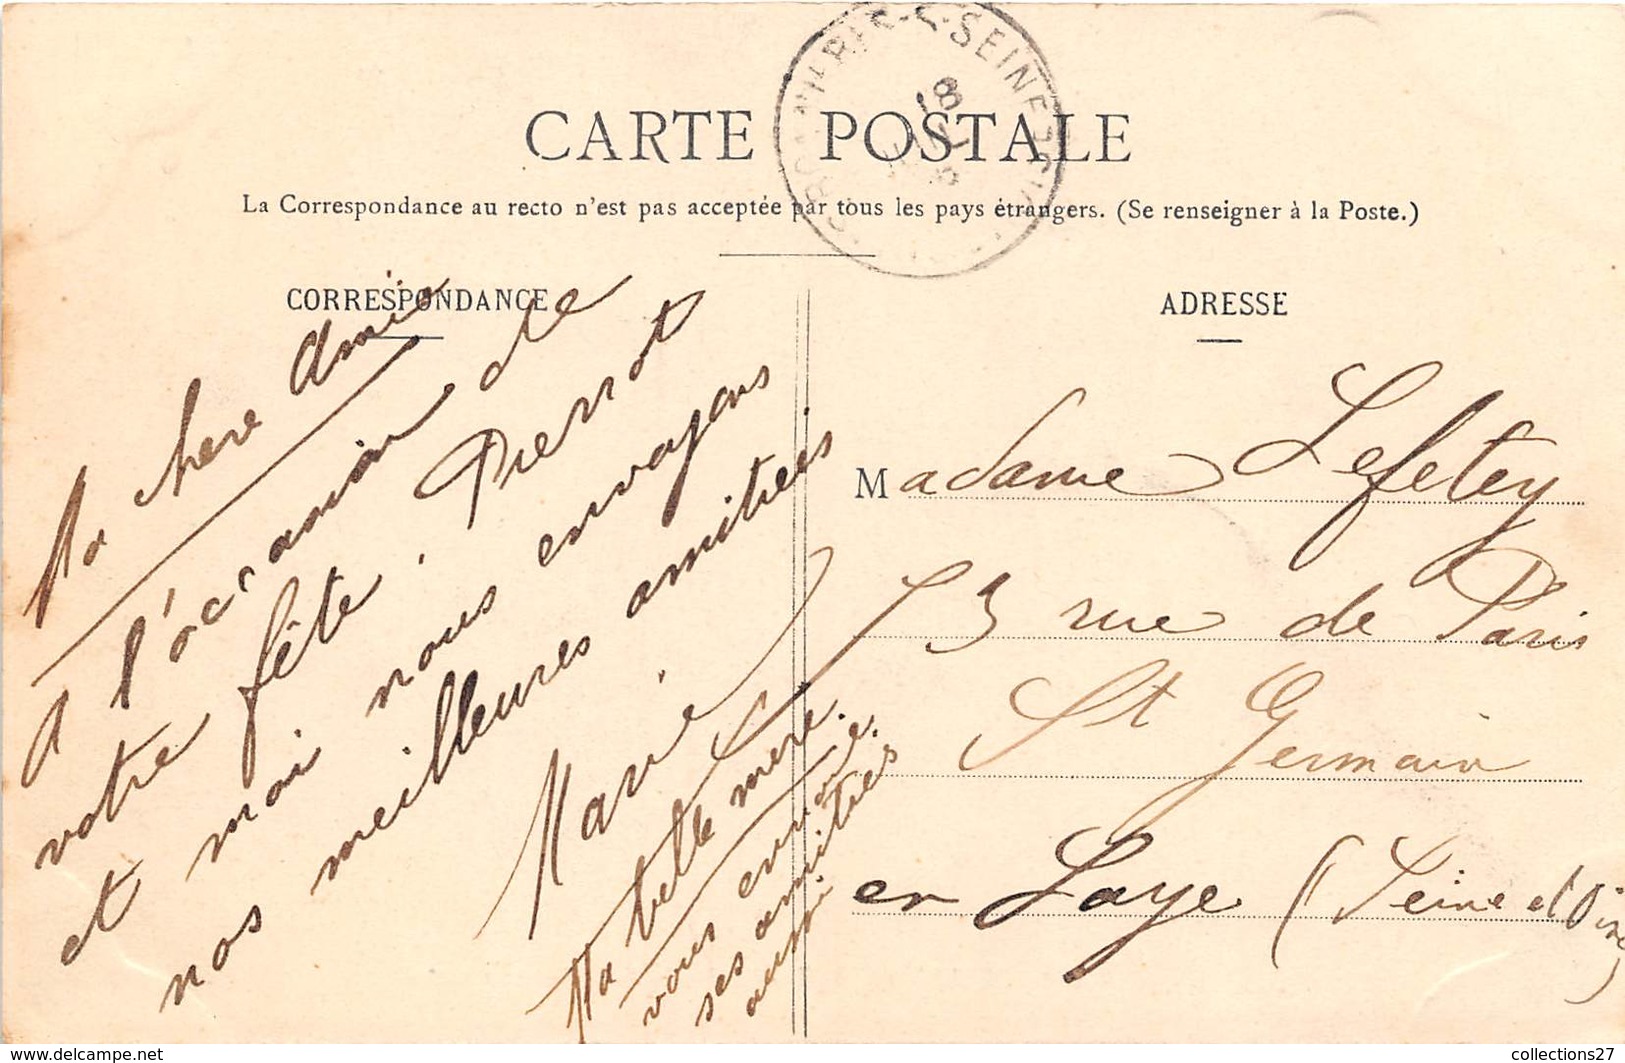 CARTE POSTALE
La Correspondance au recto n'est pas acceptée par tous les pays étrangers. (Se renseigner à la Poste.)
CORRESPONDANCE
Ma chere Amie
A l'occasion de
votre fête. Pierrot
et moi nous envoyons
nos meilleures amitiées
Marie
Ma belle mere.
vous envoie.
ses amitiées
aussi
ADRESSE
Madame Lefetey
73 rue de Paris
St Germain
en Laye (Seine et Oise)
L-SEINE
18
www.delcampe.net
collections27